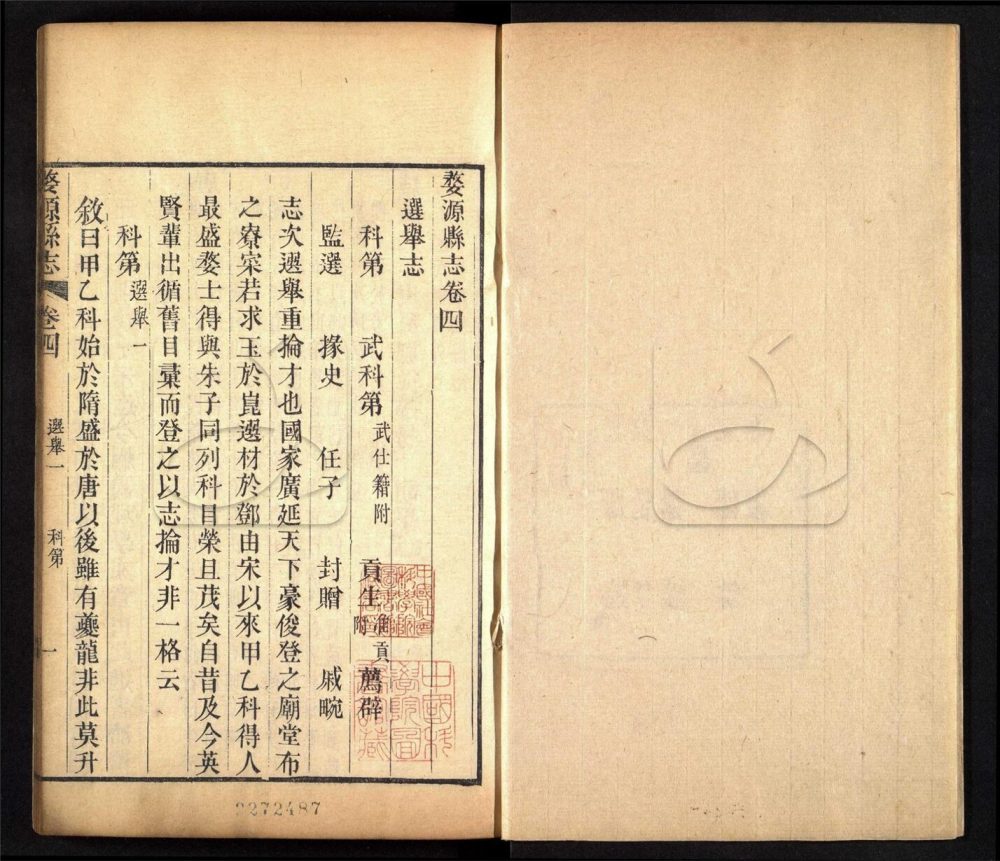 婺源縣志卷四
選舉志
科第 武科第 武仕籍附 貢生 準貢附 薦辟
監選 掾史 任子 封贈 戚畹
志次選舉重掄才也國家廣延天下豪俊登之廟堂布
之寮寀若求玉於崑選材於鄧由宋以來甲乙科得人
最盛婺士得與朱子同列科目榮且茂矣自昔及今英
賢輩出循舊目彙而登之以志掄才非一格云
科第 選舉一
敘曰甲乙科始於隋盛於唐以後雖有夔龍非此莫升
婺源縣志 卷四 選舉一 科第 一
2272487